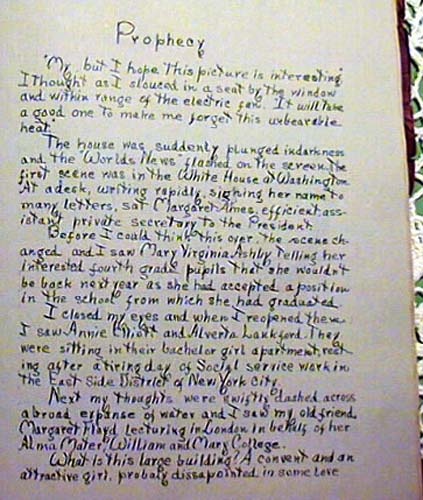 Prophecy
"My, but I hope this picture is interesting"
I thought as I slouced in a seat by the window
and within range of the electric fan. "It will take
a good one to make me forget this unbearable
heat."
The house was suddenly plunged in darkness
and the "Worlds News" flashed on the screen. The
first scene was in the White House at Washington
At a desk, writing rapidly, sighing her name to
many letters, sat Margaret Ames, efficient ass-
istant private secretary to the President
Before I could think this over, the scene ch-
anged and I saw Mary Virginia Ashby telling her
interested fourth grade pupils that she wouldn't
be back next year as she had accepted a position
in the school from which she had graduated.
I closed my eyes and when I reopened them
I saw Annie Elliott and Alverta Lankford. They
were sitting in their bachelor girl apartment, rest
ing after a tiring day of Social service work in
the East Side District of New York City.
Next my thoughts were swiftly dashed across
a broad expanse of water and I saw my old friend,
Margaret Floyd lecturing in London in behalf of her
Alma Mater, William and Mary College.
What is this large building? A convent and an
attractive girl, probaly dissapointed in some love